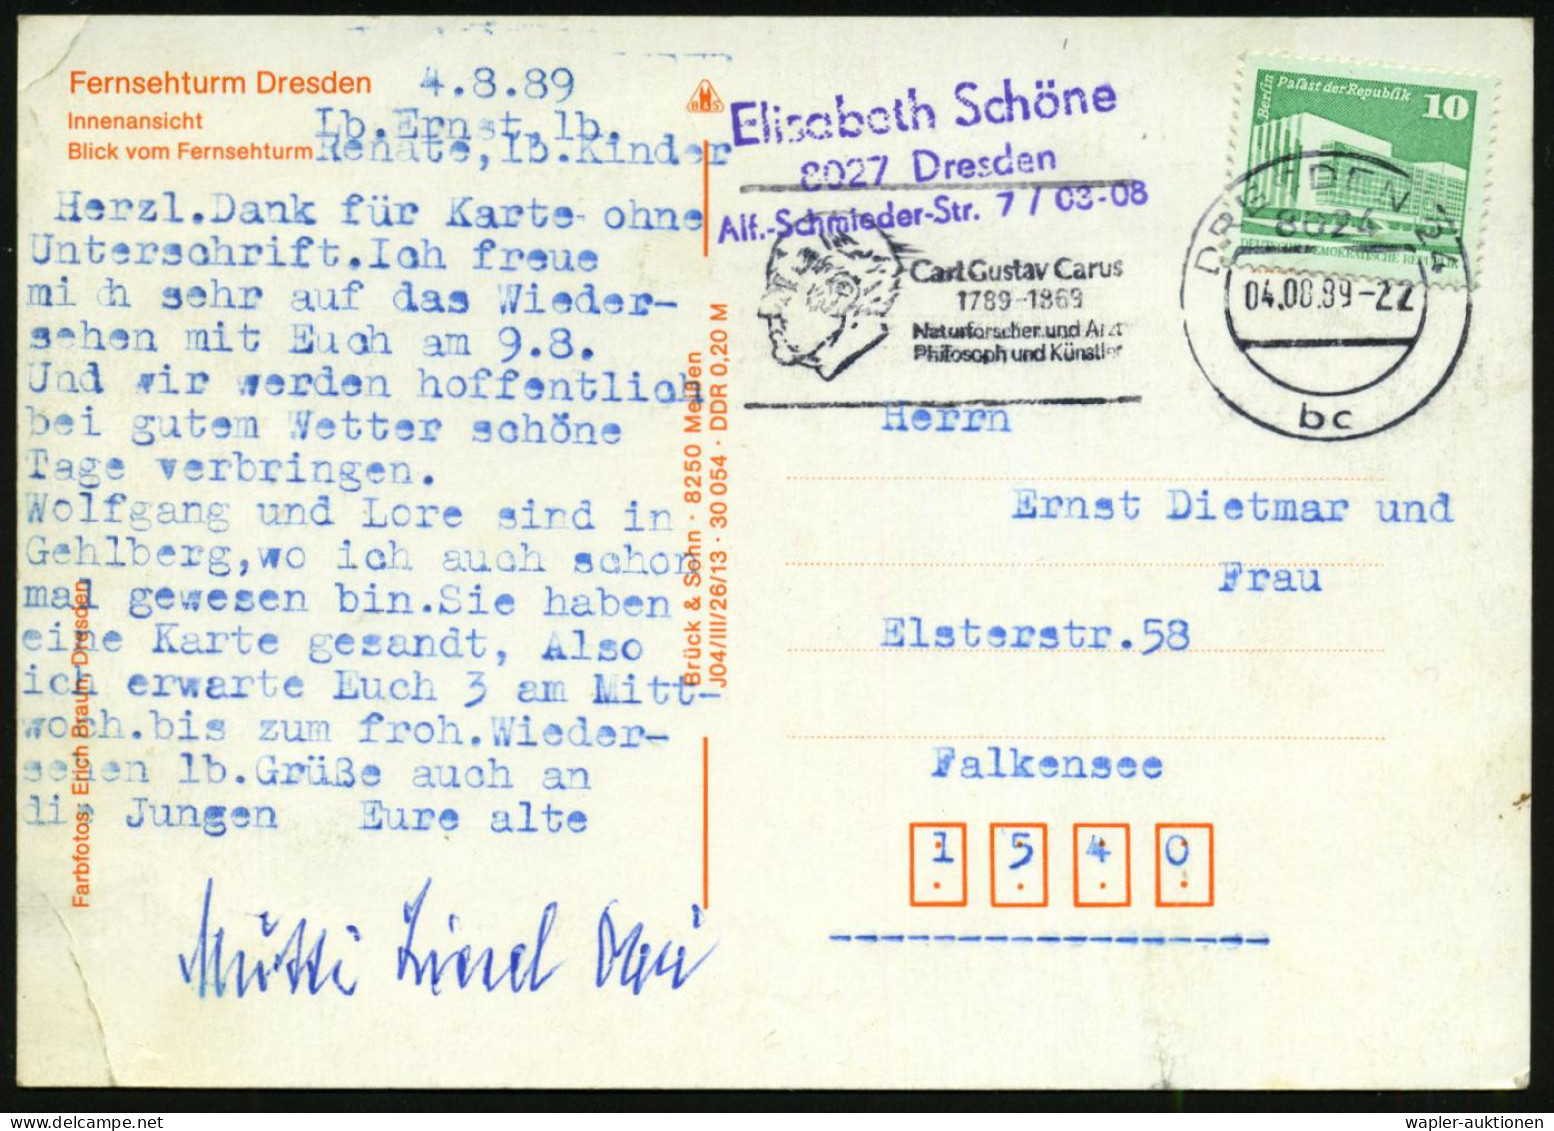 Fernsehturm Dresden
Innenansicht
Blick vom Fernsehturm
4.8.89
Lb.Ernst lb.
Renate, lb.Kinder
Herzl.Dank für Karte ohne
Unterschrift.Ich freue
mich sehr auf das Wieder-
sehen mit Euch am 9.8.
Und wir werden hoffentlich
bei gutem Wetter schöne
Tage verbringen.
Wolfgang und Lore sind in
Gehlberg,wo ich auch schon
mal gewesen bin.Sie haben
eine Karte gesandt, Also
ich erwarte Euch 3 am Mitt-
woch.bis zum froh.Wieder-
sehen lb.Grüße auch an
die Jungen Eure alte
Mutti Liesel Omi
Farbfotos: Erich Braun, Dresden
Brück & Sohn · 8250 Meißen
J04/III/26/13 · 30 054 · DDR 0,20 M
B S
Elisabeth Schöne
8027 Dresden
Alf.-Schmieder-Str. 7 / 03-08
Carl Gustav Carus
1789-1869
Naturforscher und Arzt
Philosoph und Künstler
Berlin Palast der Republik
10
DEUTSCHE DEMOKRATISCHE REPUBLIK
DRESDEN 24
8024
04.08.89-22
bc
Herrn
Ernst Dietmar und
Frau
Elsterstr.58
Falkensee
1 5 4 0
wapler-auktionen